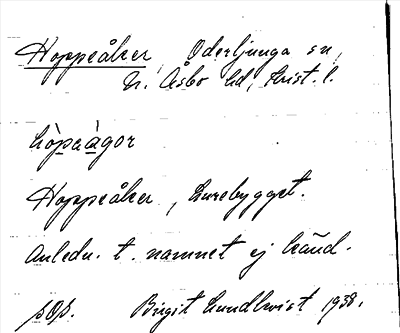 Hoppeåker, Oderljunga sn,
N. Åsbo hd, Krist. l.
hòpaàgor
Hoppeåker, Lurebygget.
Anledn. t. namnet ej känd.
Birgit Lundkvist 1938.